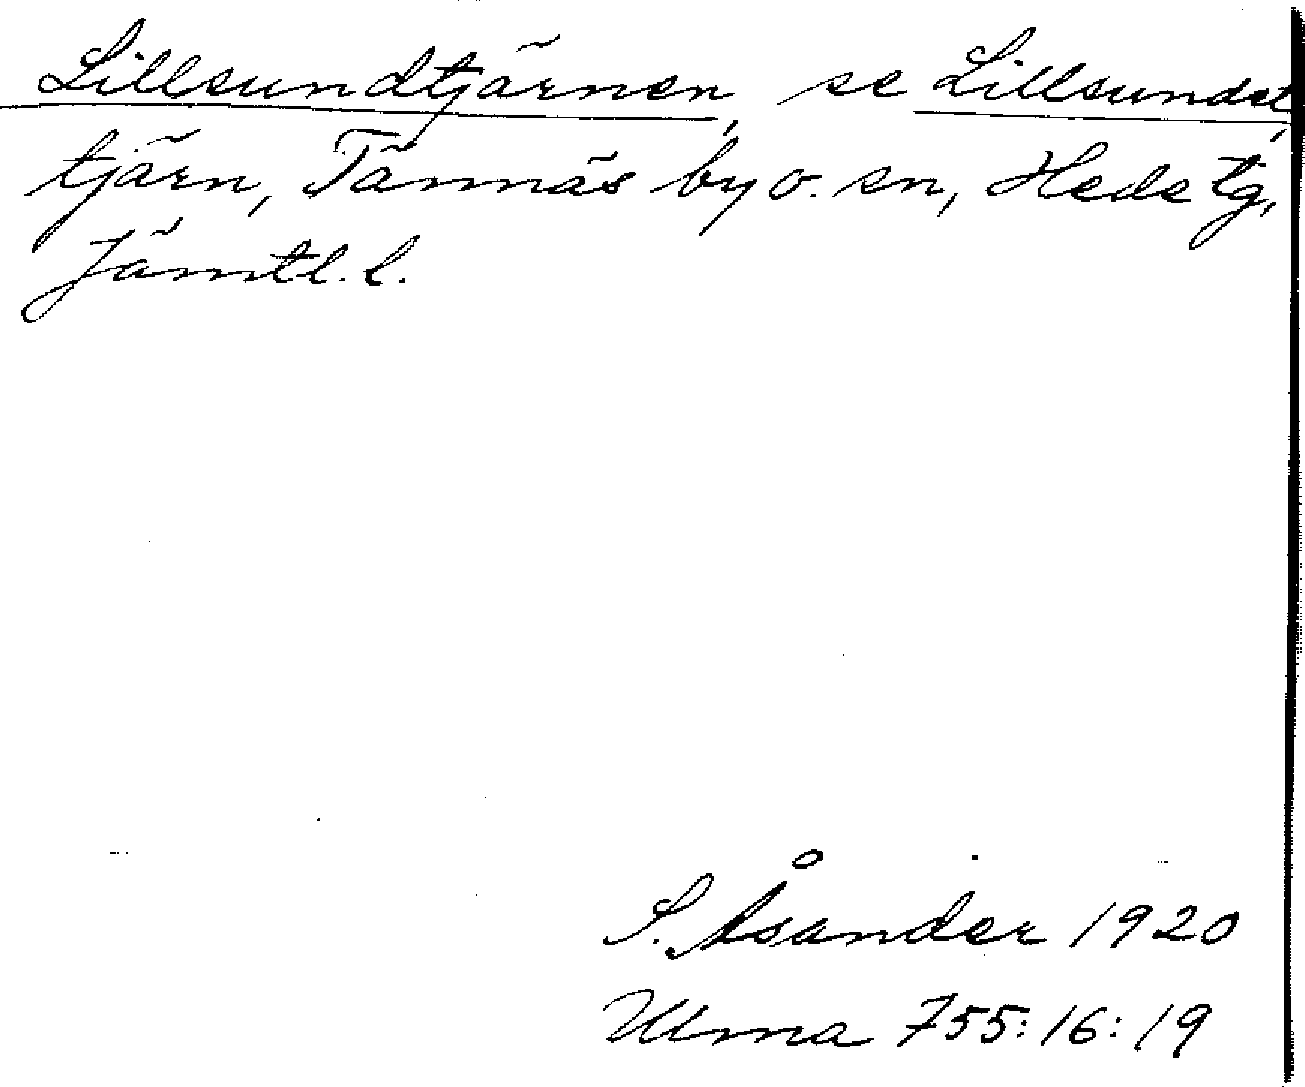 Lillsundtjärnen, se Lillsundet,
tjärn, Tännäs by o. sn, Heds tg,
Jämtl. l.
S. Åsander 1920
Ulma 755:16:19